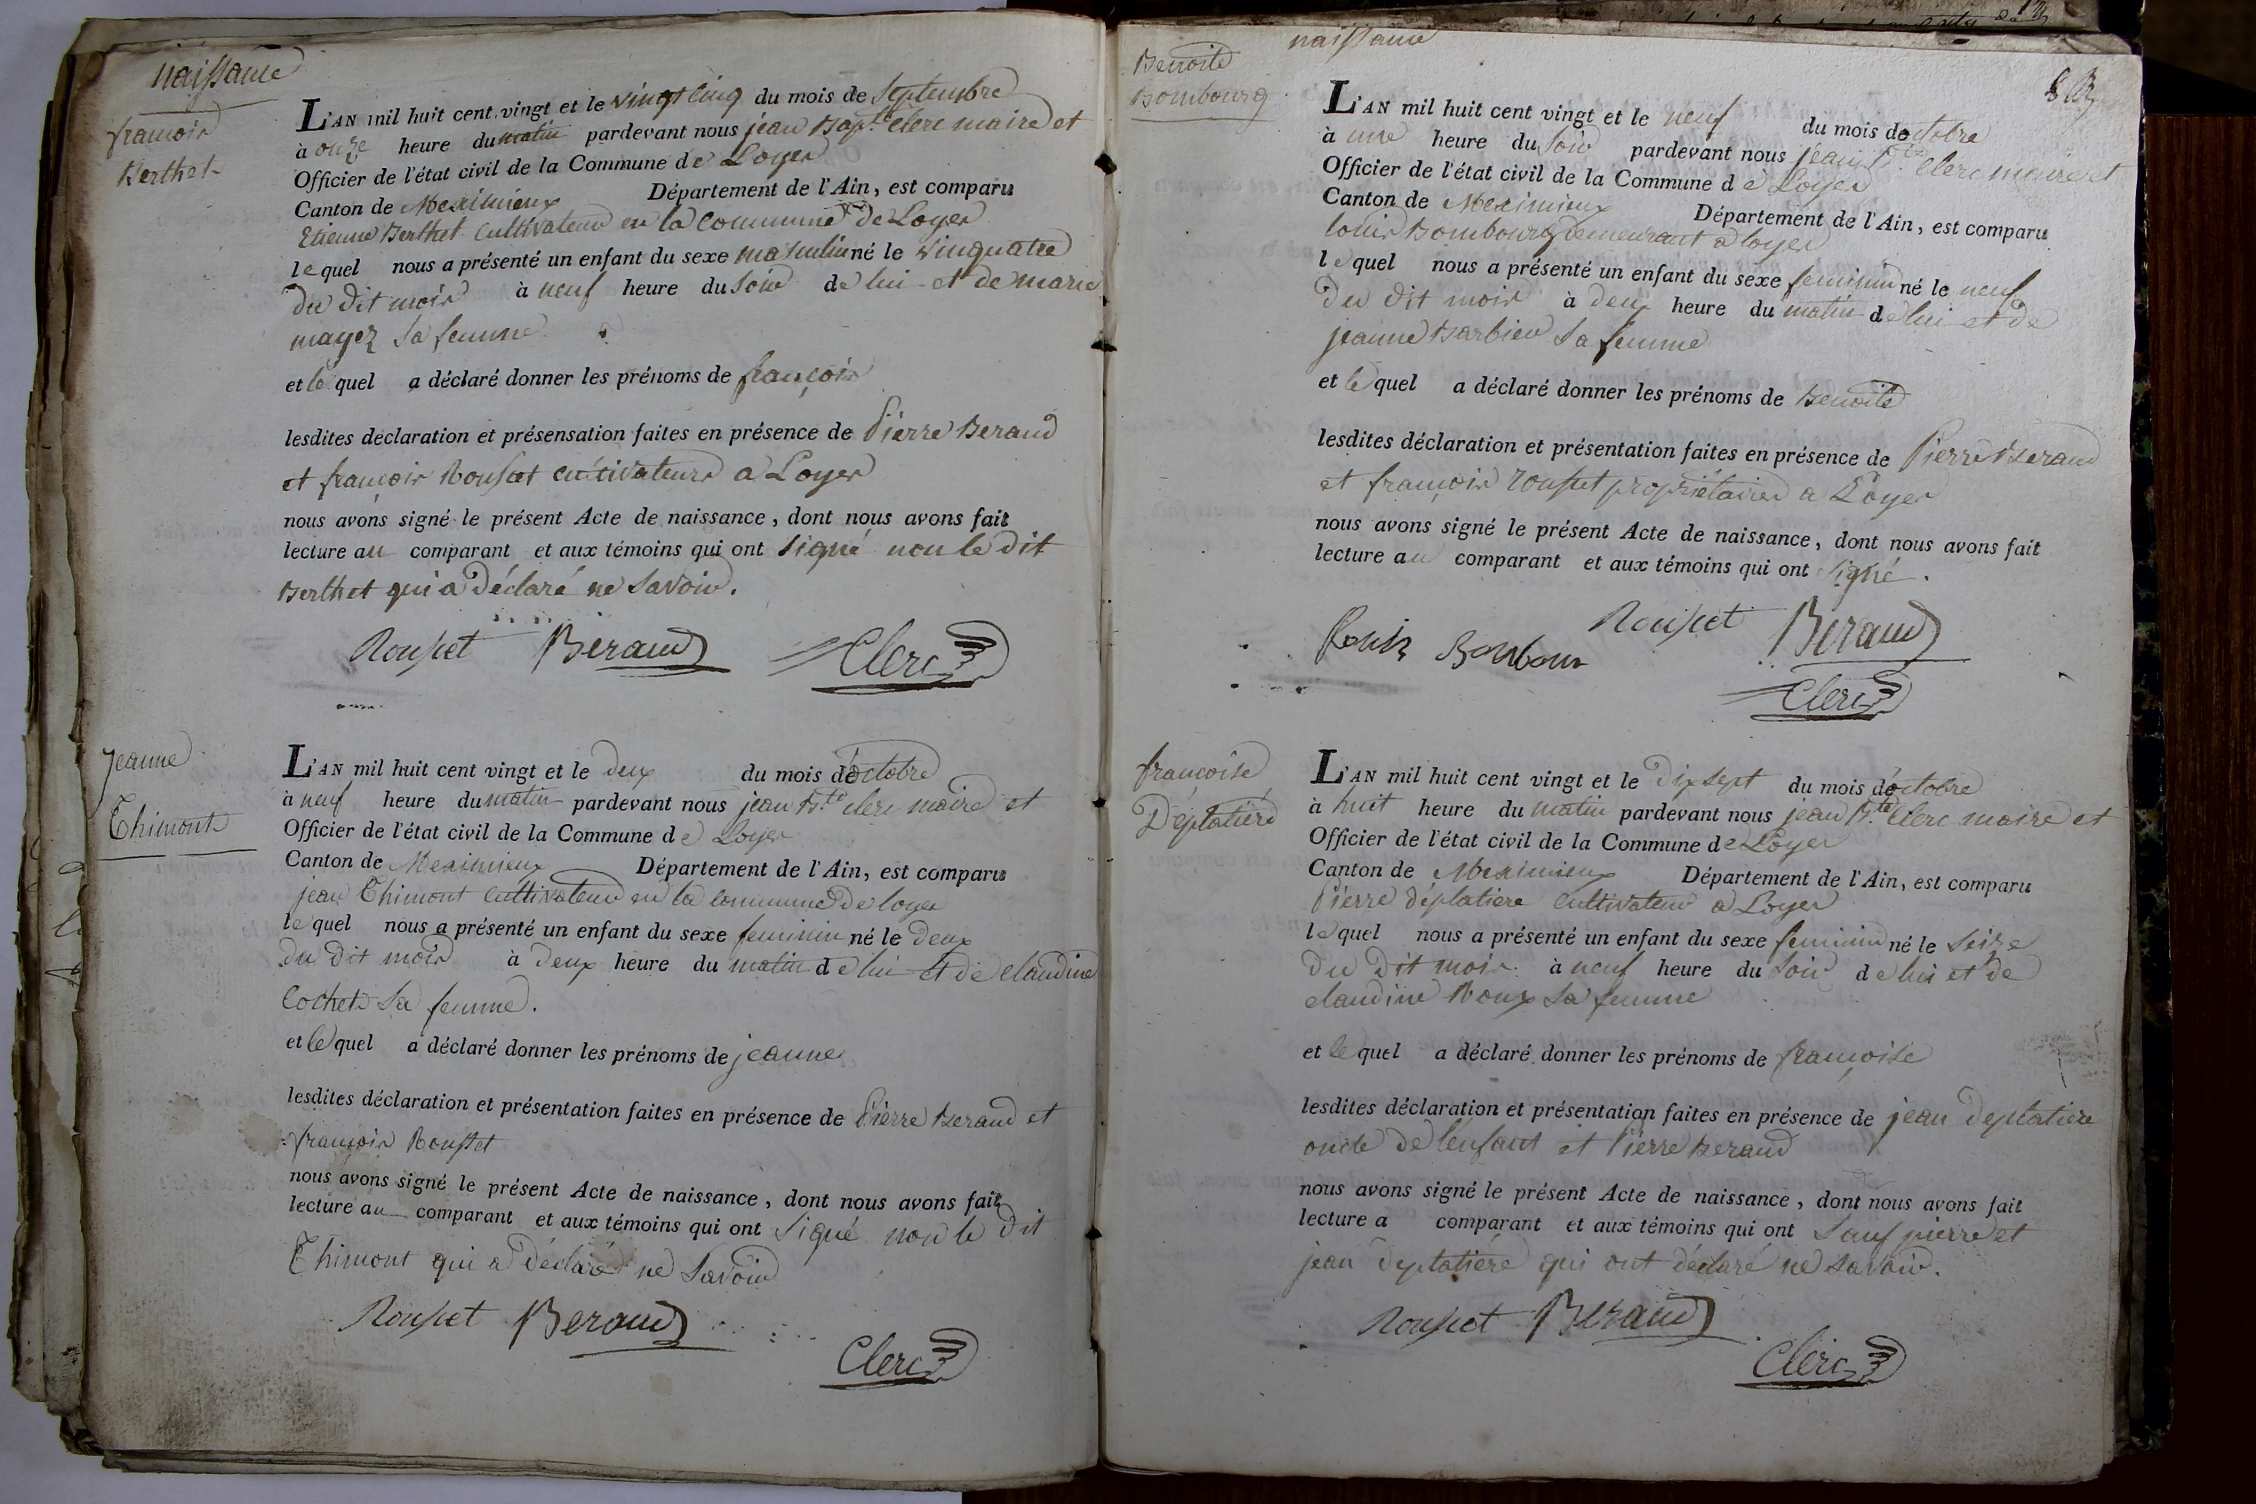 naissance
françois
Berthet
L'AN mil huit cent vingt et le vingt cinq du mois de Septembre
à onze heure du matin pardevant nous jean Bapt.te Clerc maire et
Officier de l'état civil de la Commune de Loyes
Canton de Meximieux Département de l'Ain, est comparu
Etienne Berthet cultivateur en la commune de Loyes
lequel nous a présenté un enfant du sexe masculin né le vinquatre
du dit mois à neuf heure du soir de lui et de marie
mayez sa femme
et lequel a déclaré donner les prénoms de françois
lesdites déclaration et présensation faites en présence de Pierre Beraud
et françois Rousset cultivateurs a Loyes
nous avons signé le présent Acte de naissance, dont nous avons fait
lecture au comparant et aux témoins qui ont signé non le dit
Berthet qui a déclaré ne savoir.
Rousset Beraud Clerc
Jeanne
Thimont
L'AN mil huit cent vingt et le deux du mois d'octobre
à neuf heure du matin pardevant nous jean B.te clerc maire et
Officier de l'état civil de la Commune de Loyes
Canton de Meximieux Département de l'Ain, est comparu
jean Thimont cultivateur en la commune de loyes
lequel nous a présenté un enfant du sexe feminin né le deux
du dit mois à deux heure du matin de lui et de claudine
Cochet sa femme.
et lequel a déclaré donner les prénoms de jeanne
lesdites déclaration et présentation faites en présence de Pierre Beraud et
françois Rousset
nous avons signé le présent Acte de naissance, dont nous avons fait
lecture au comparant et aux témoins qui ont signé non le dit
Thimont qui a déclaré ne savoir
Rousset Beraud
Clerc
naissance
Benoite
Bombourg
L'AN mil huit cent vingt et le neuf du mois d'octobre
à une heure du soir pardevant nous jean B.te Clerc maire et
Officier de l'état civil de la Commune de Loyes
Canton de Meximieux Département de l'Ain, est comparu
louis Bombourg demeurant a loyes
lequel nous a présenté un enfant du sexe feminin né le neuf
du dit mois à deux heure du matin de lui et de
jeanne Barbier sa femme
et lequel a déclaré donner les prénoms de Benoite
lesdites déclaration et présentation faites en présence de Pierre Beraud
et françois rousset propriétaires a Loyes
nous avons signé le présent Acte de naissance, dont nous avons fait
lecture au comparant et aux témoins qui ont signé.
Rousset Beraud
Louis Bonbour
Clerc
françoise
Déplatière
L'AN mil huit cent vingt et le dix sept du mois d'octobre
à huit heure du matin pardevant nous jean B.te Clerc maire et
Officier de l'état civil de la Commune de Loyes
Canton de Meximieux Département de l'Ain, est comparu
Pierre déplatiere cultivateur a Loyes
lequel nous a présenté un enfant du sexe feminin né le seize
du dit mois à neuf heure du soir de lui et de
claudine Roux sa femme
et lequel a déclaré donner les prénoms de françoise
lesdites déclaration et présentation faites en présence de jean deplatiere
oncle de l'enfant et Pierre Beraud
nous avons signé le présent Acte de naissance, dont nous avons fait
lecture a comparant et aux témoins qui ont sauf pierre et
jean deplatière qui ont déclaré ne savoir.
Rousset Beraud
Clerc